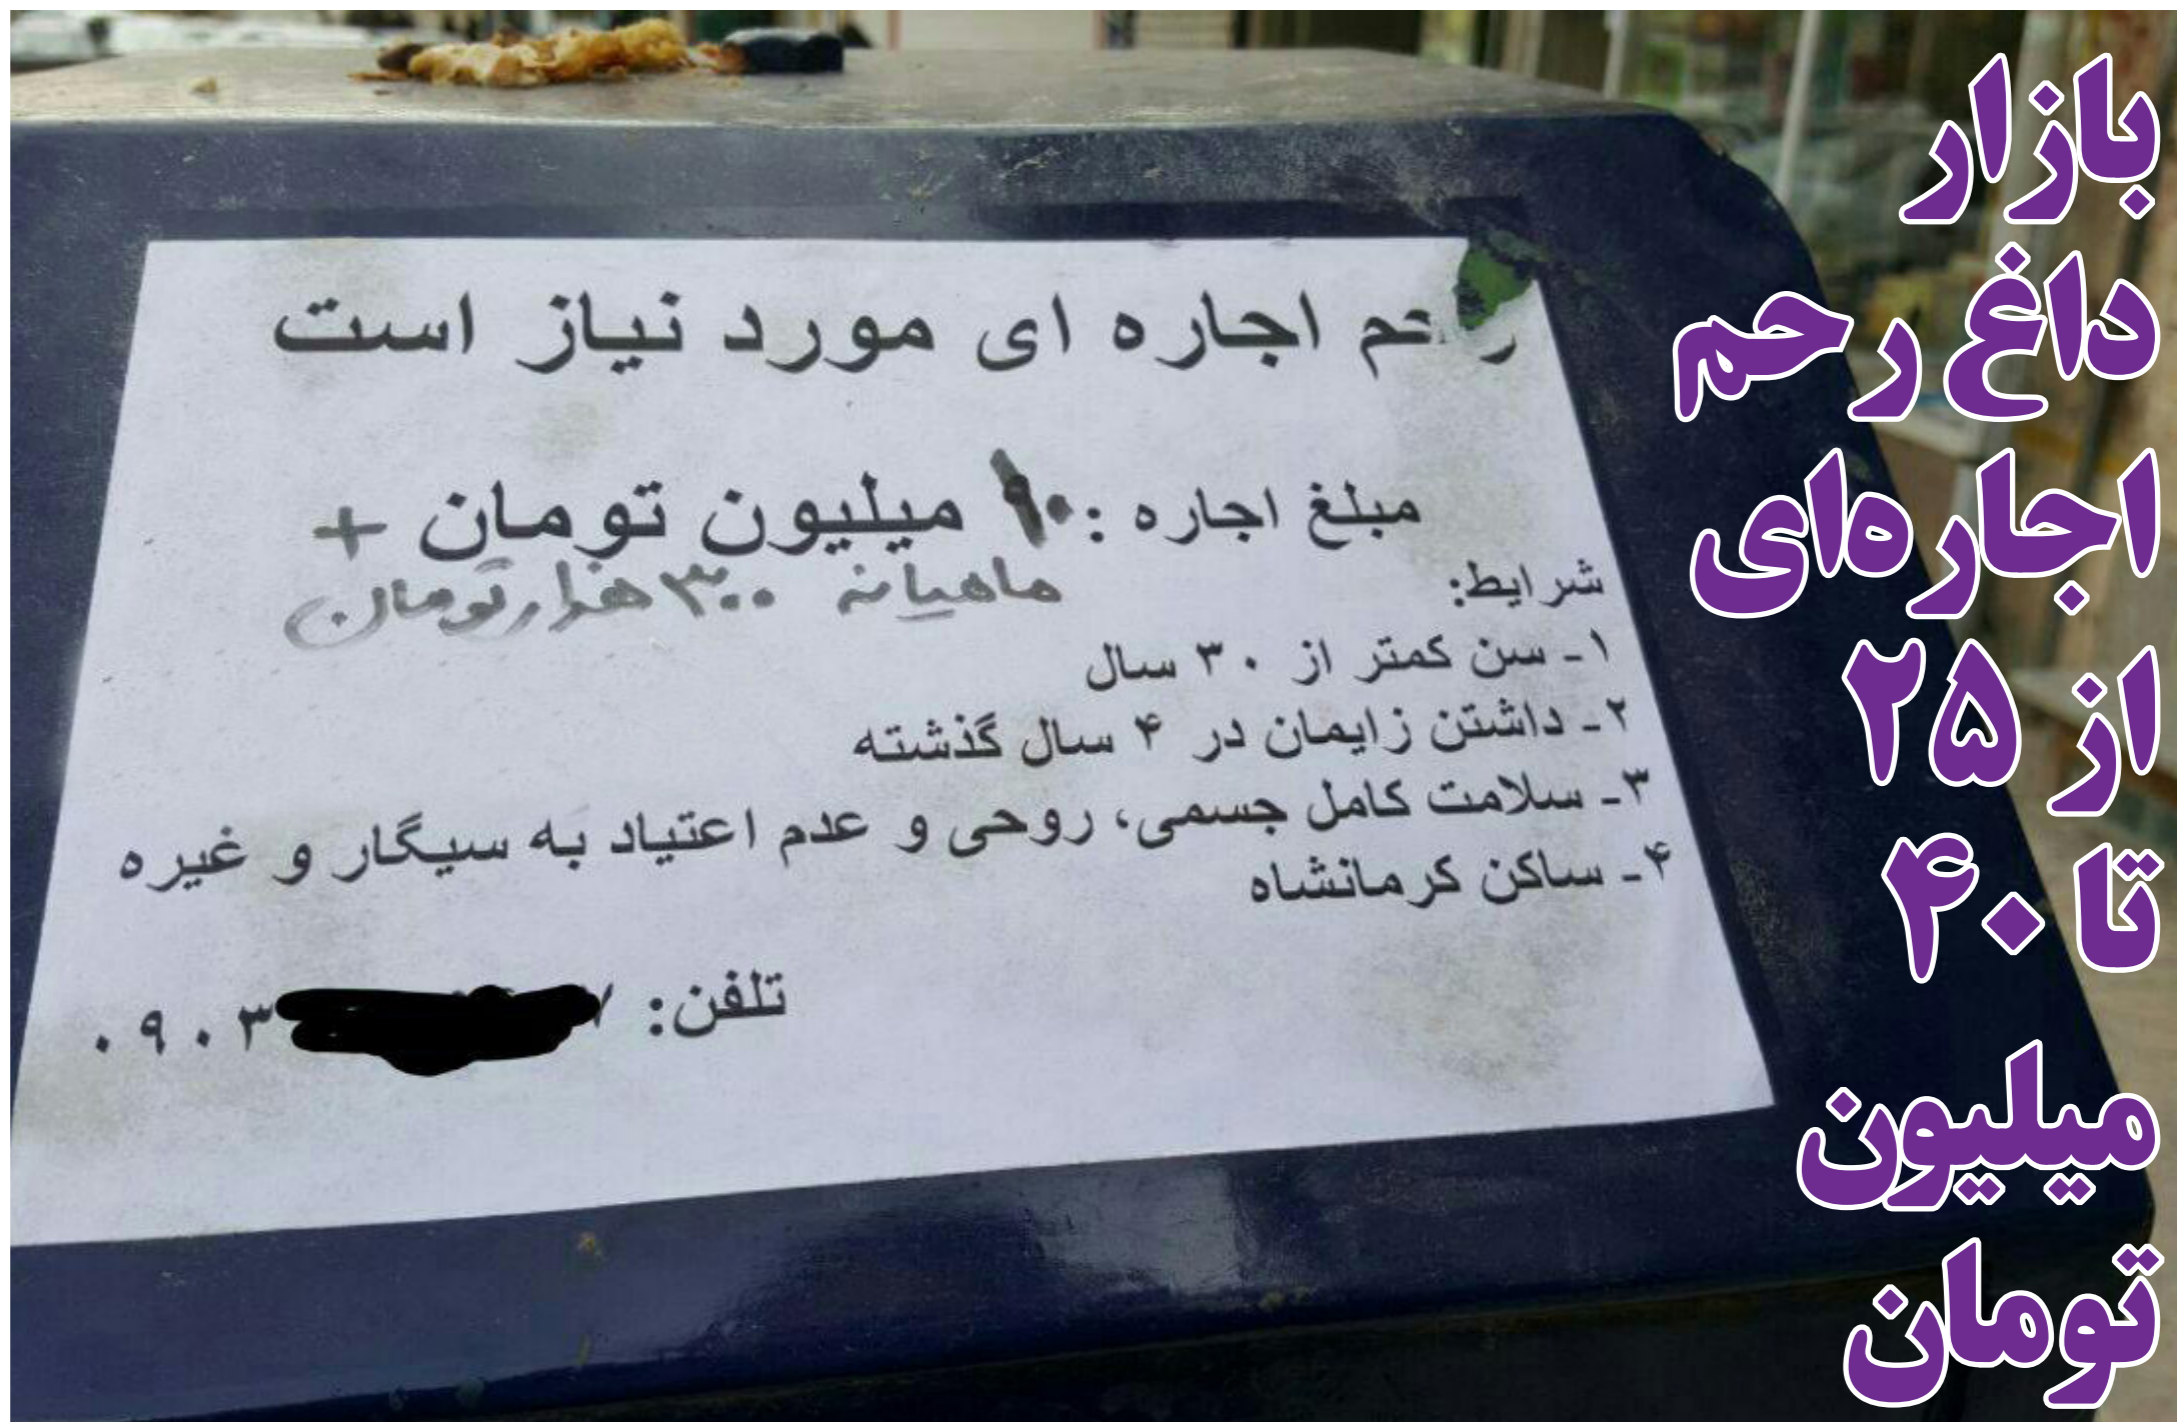 بازار
داغ رحم
اجاره‌ای
از ۲۵
تا ۴۰
میلیون
تومان
رحم اجاره ای مورد نیاز است
مبلغ اجاره : میلیون تومان +
ماهیانه ۳۰۰ هزار تومان
شرایط:
۱- سن کمتر از ۳۰ سال
۲- داشتن زایمان در ۴ سال گذشته
۳- سلامت کامل جسمی، روحی و عدم اعتیاد به سیگار و غیره
۴- ساکن کرمانشاه
تلفن: ۰۹۰۳